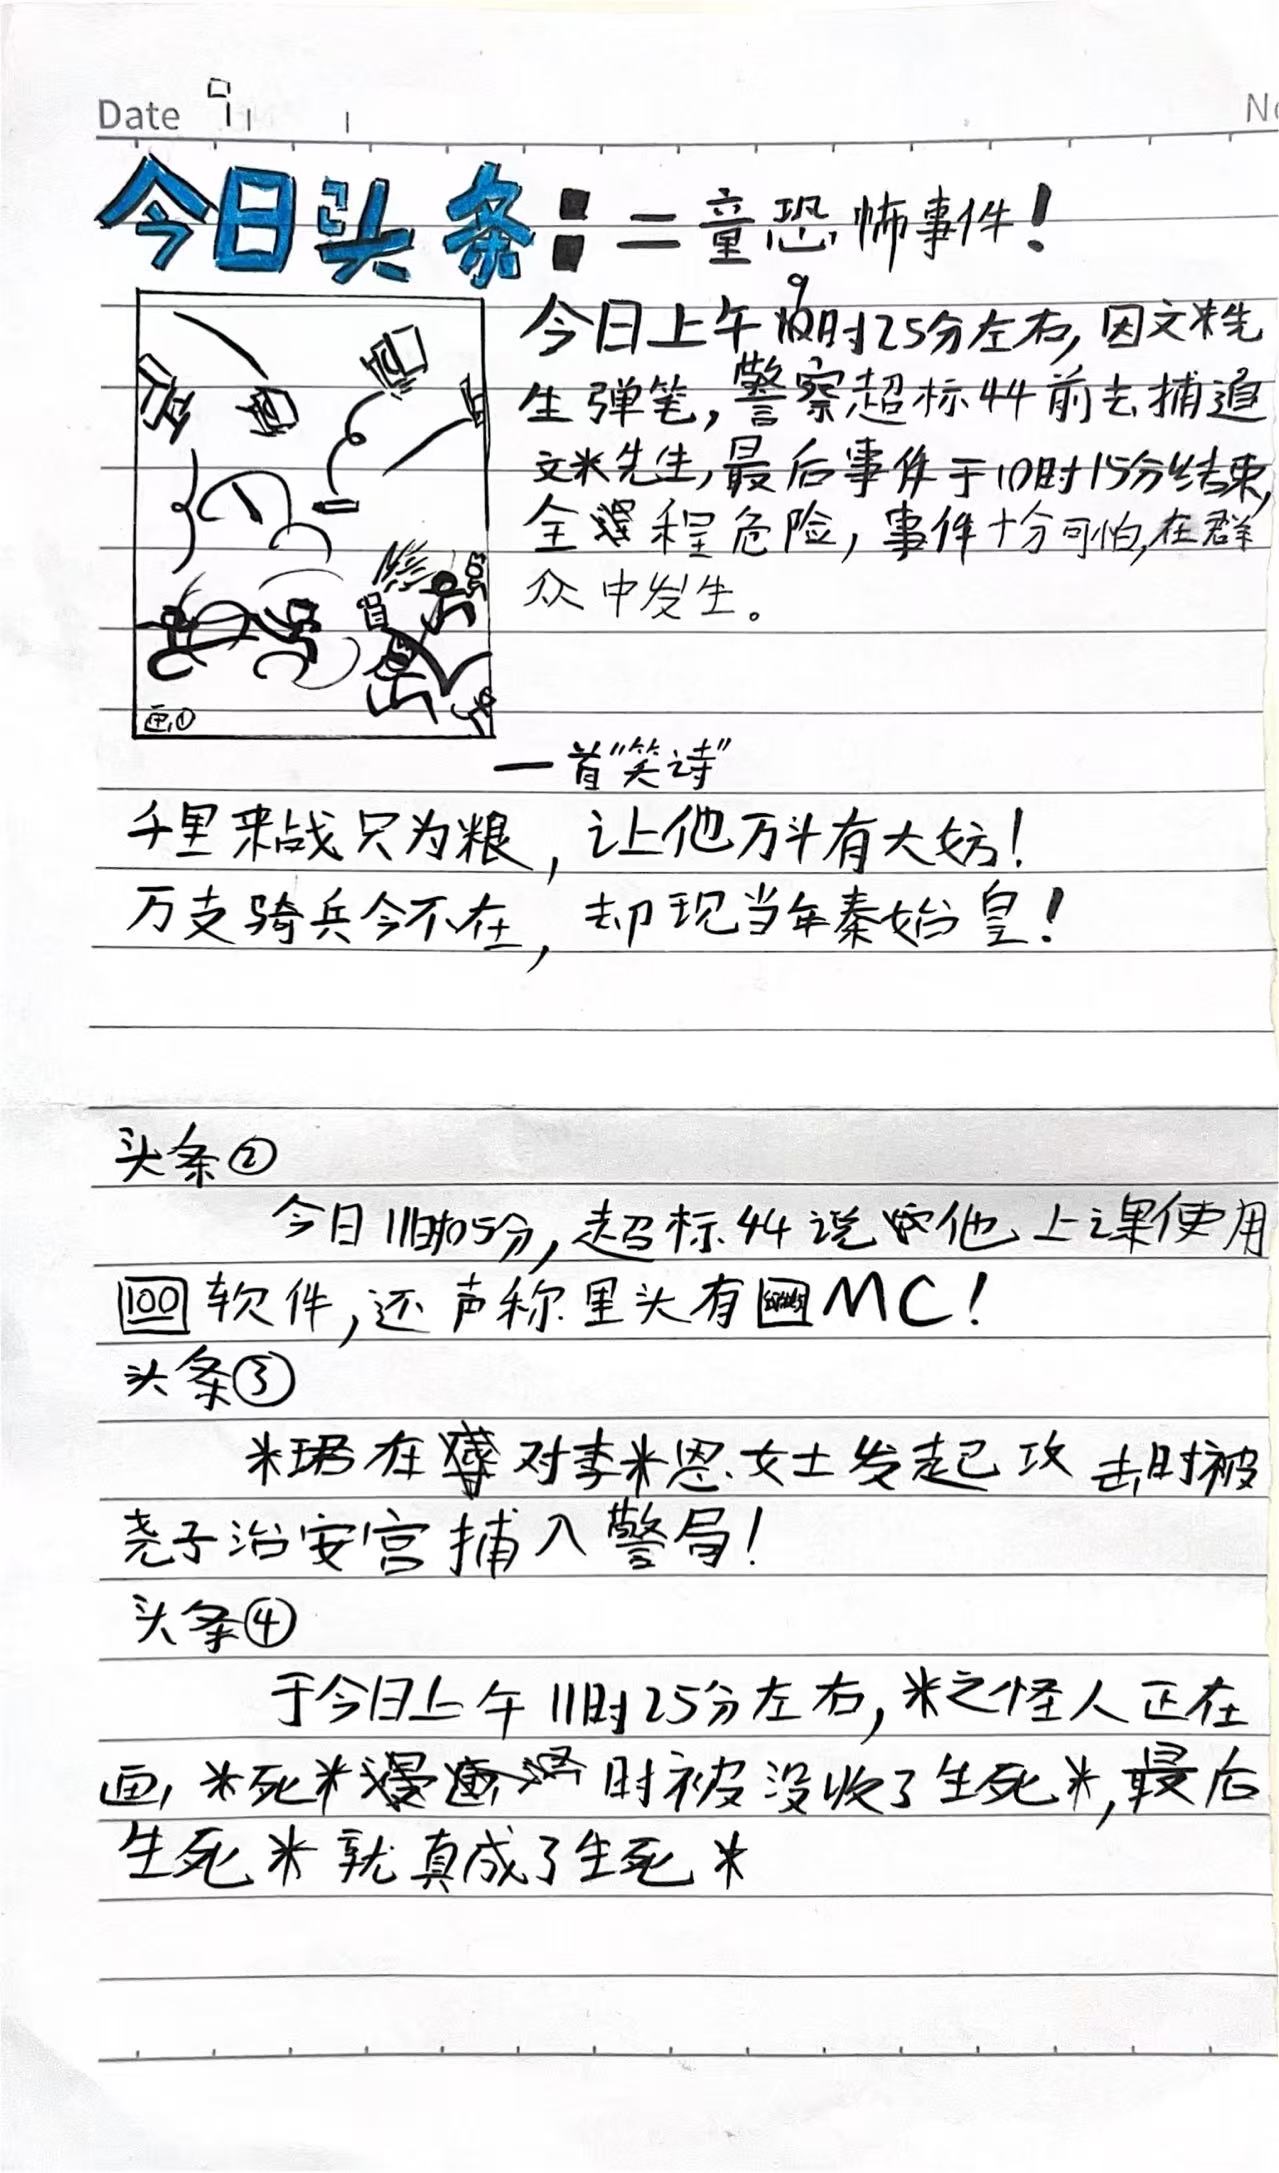 Date 9
No
今日头条：二童恐怖事件！
9
今日上午时25分左右，因文米先
生弹笔，警察超标44前去捕追
文米先生，最后事件于10时15分结束，
全程危险，事件十分可怕，在群
众中发生。
画①
一首“笑诗”
千里来战只为粮，让他万斗有大妨！
万支骑兵今不在，却现当年秦始皇！
头条②
今日11时05分，超标44说他上课使用
100软件，还声称里头有MC！
头条③
米珺在对李米恩女士发起攻击时被
尧子治安宫捕入警局！
头条④
于今日上午11时25分左右，米之怪人正在
画米死米漫画时被没收了生死米，最后
生死米就真成了生死米